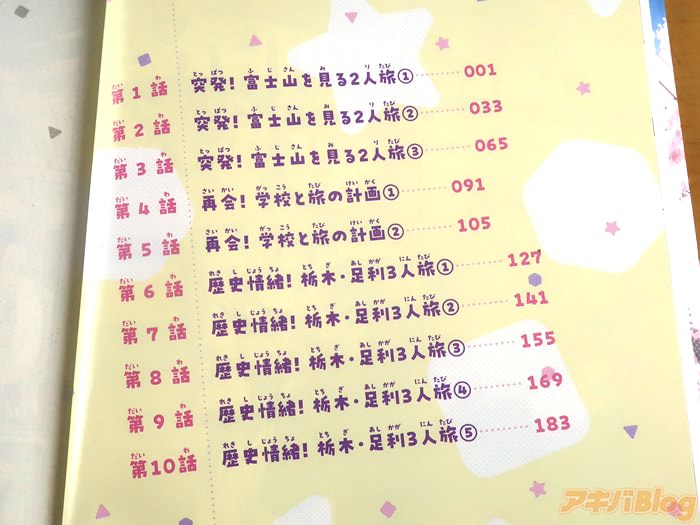 第1話 突発!富士山を見る2人旅① 001
第2話 突発!富士山を見る2人旅② 033
第3話 突発!富士山を見る2人旅③ 065
第4話 再会!学校と旅の計画① 091
第5話 再会!学校と旅の計画② 105
第6話 歴史情緒!栃木・足利3人旅① 127
第7話 歴史情緒!栃木・足利3人旅② 141
第8話 歴史情緒!栃木・足利3人旅③ 155
第9話 歴史情緒!栃木・足利3人旅④ 169
第10話 歴史情緒!栃木・足利3人旅⑤ 183
アキバBlog